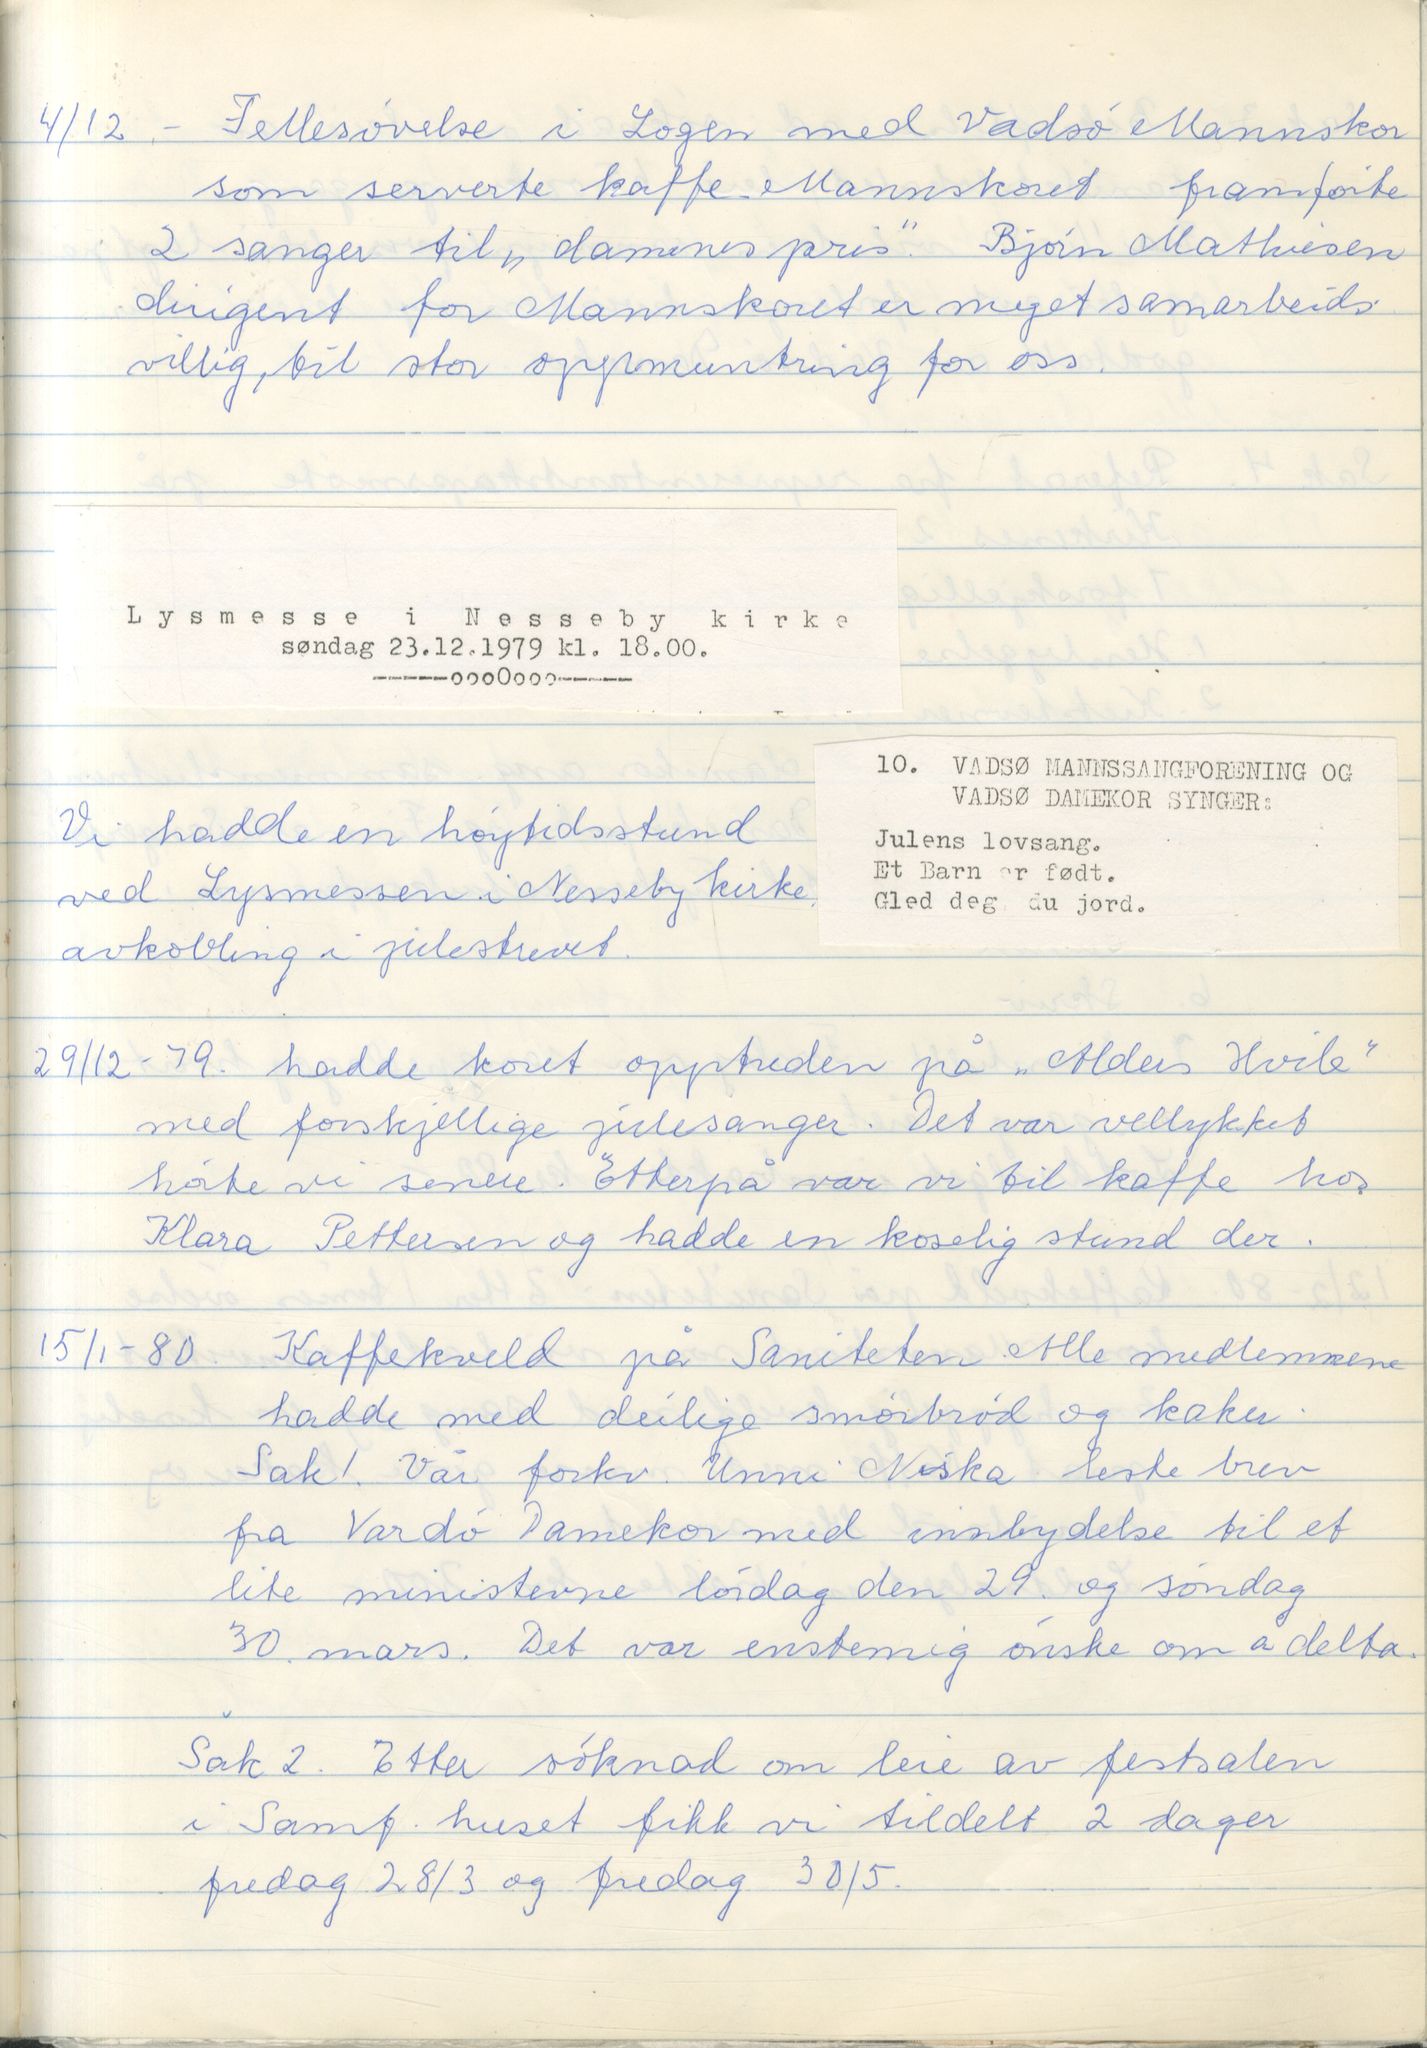 4/12 - Fellesøvelse i Logen med Vadsø Mannskor
som serverte kaffe. Mannskoret framførte
2 sanger til „damenes pris". Bjørn Mathiesen
dirigent for Mannskoret er meget samarbeids
villig, til stor oppmuntring for oss.
Lysmesse i Nesseby kirke
søndag 23.12.1979 kl. 18.00.
-----oooOooo-----
10. VADSØ MANNSSANGFORENING OG
VADSØ DAMEKOR SYNGER:
Julens lovsang.
Et Barn er født.
Gled deg du jord.
Vi hadde en høytidsstund
ved Lysmessen i Nesseby kirke,
avkobling i julestrevet.
29/12-79. hadde koret opptreden på „Alders Hvile"
med forskjellige julesanger. Det var vellykket
hørte vi senere. Etterpå var vi til kaffe hos
Klara Pettersen og hadde en koselig stund der.
15/1-80. Kaffekveld på Saniteten. Alle medlemmene
hadde med deilige smørbrød og kaker.
Sak 1. Vår forkv. Unni Niska leste brev
fra Vardø Damekor med innbydelse til et
lite ministevne lørdag den 29. og søndag
30. mars. Det var enstemig ønske om å delta.
Sak 2. Etter søknad om leie av festsalen
i Samf. huset fikk vi tildelt 2 dager
fredag 28/3 og fredag 30/5.